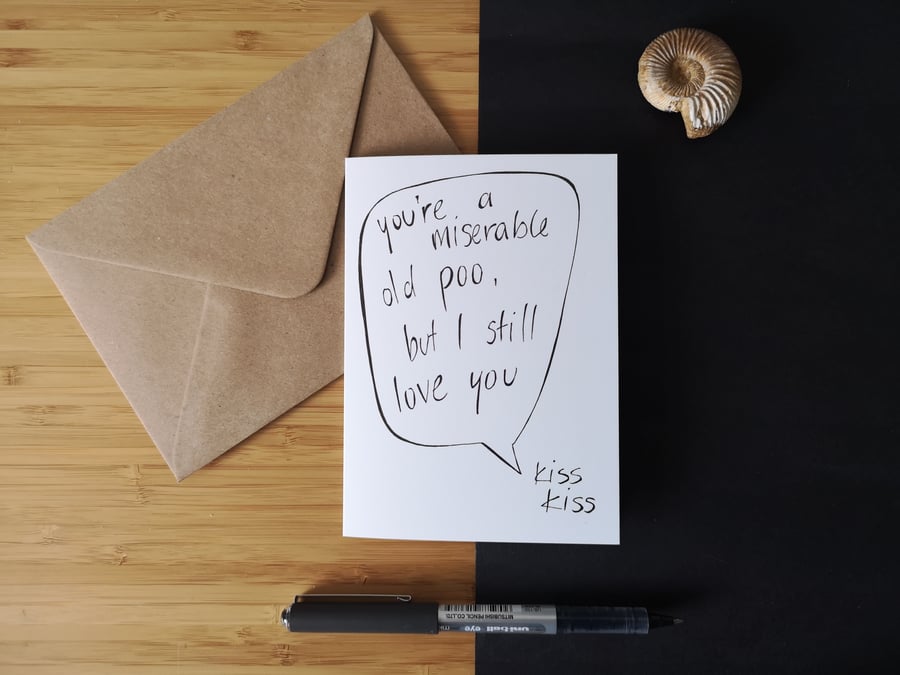 you're a
miserable
old poo,
but I still
love you
kiss
kiss
MITSUBISHI PENCIL CO.,LTD.
uni-ball eye